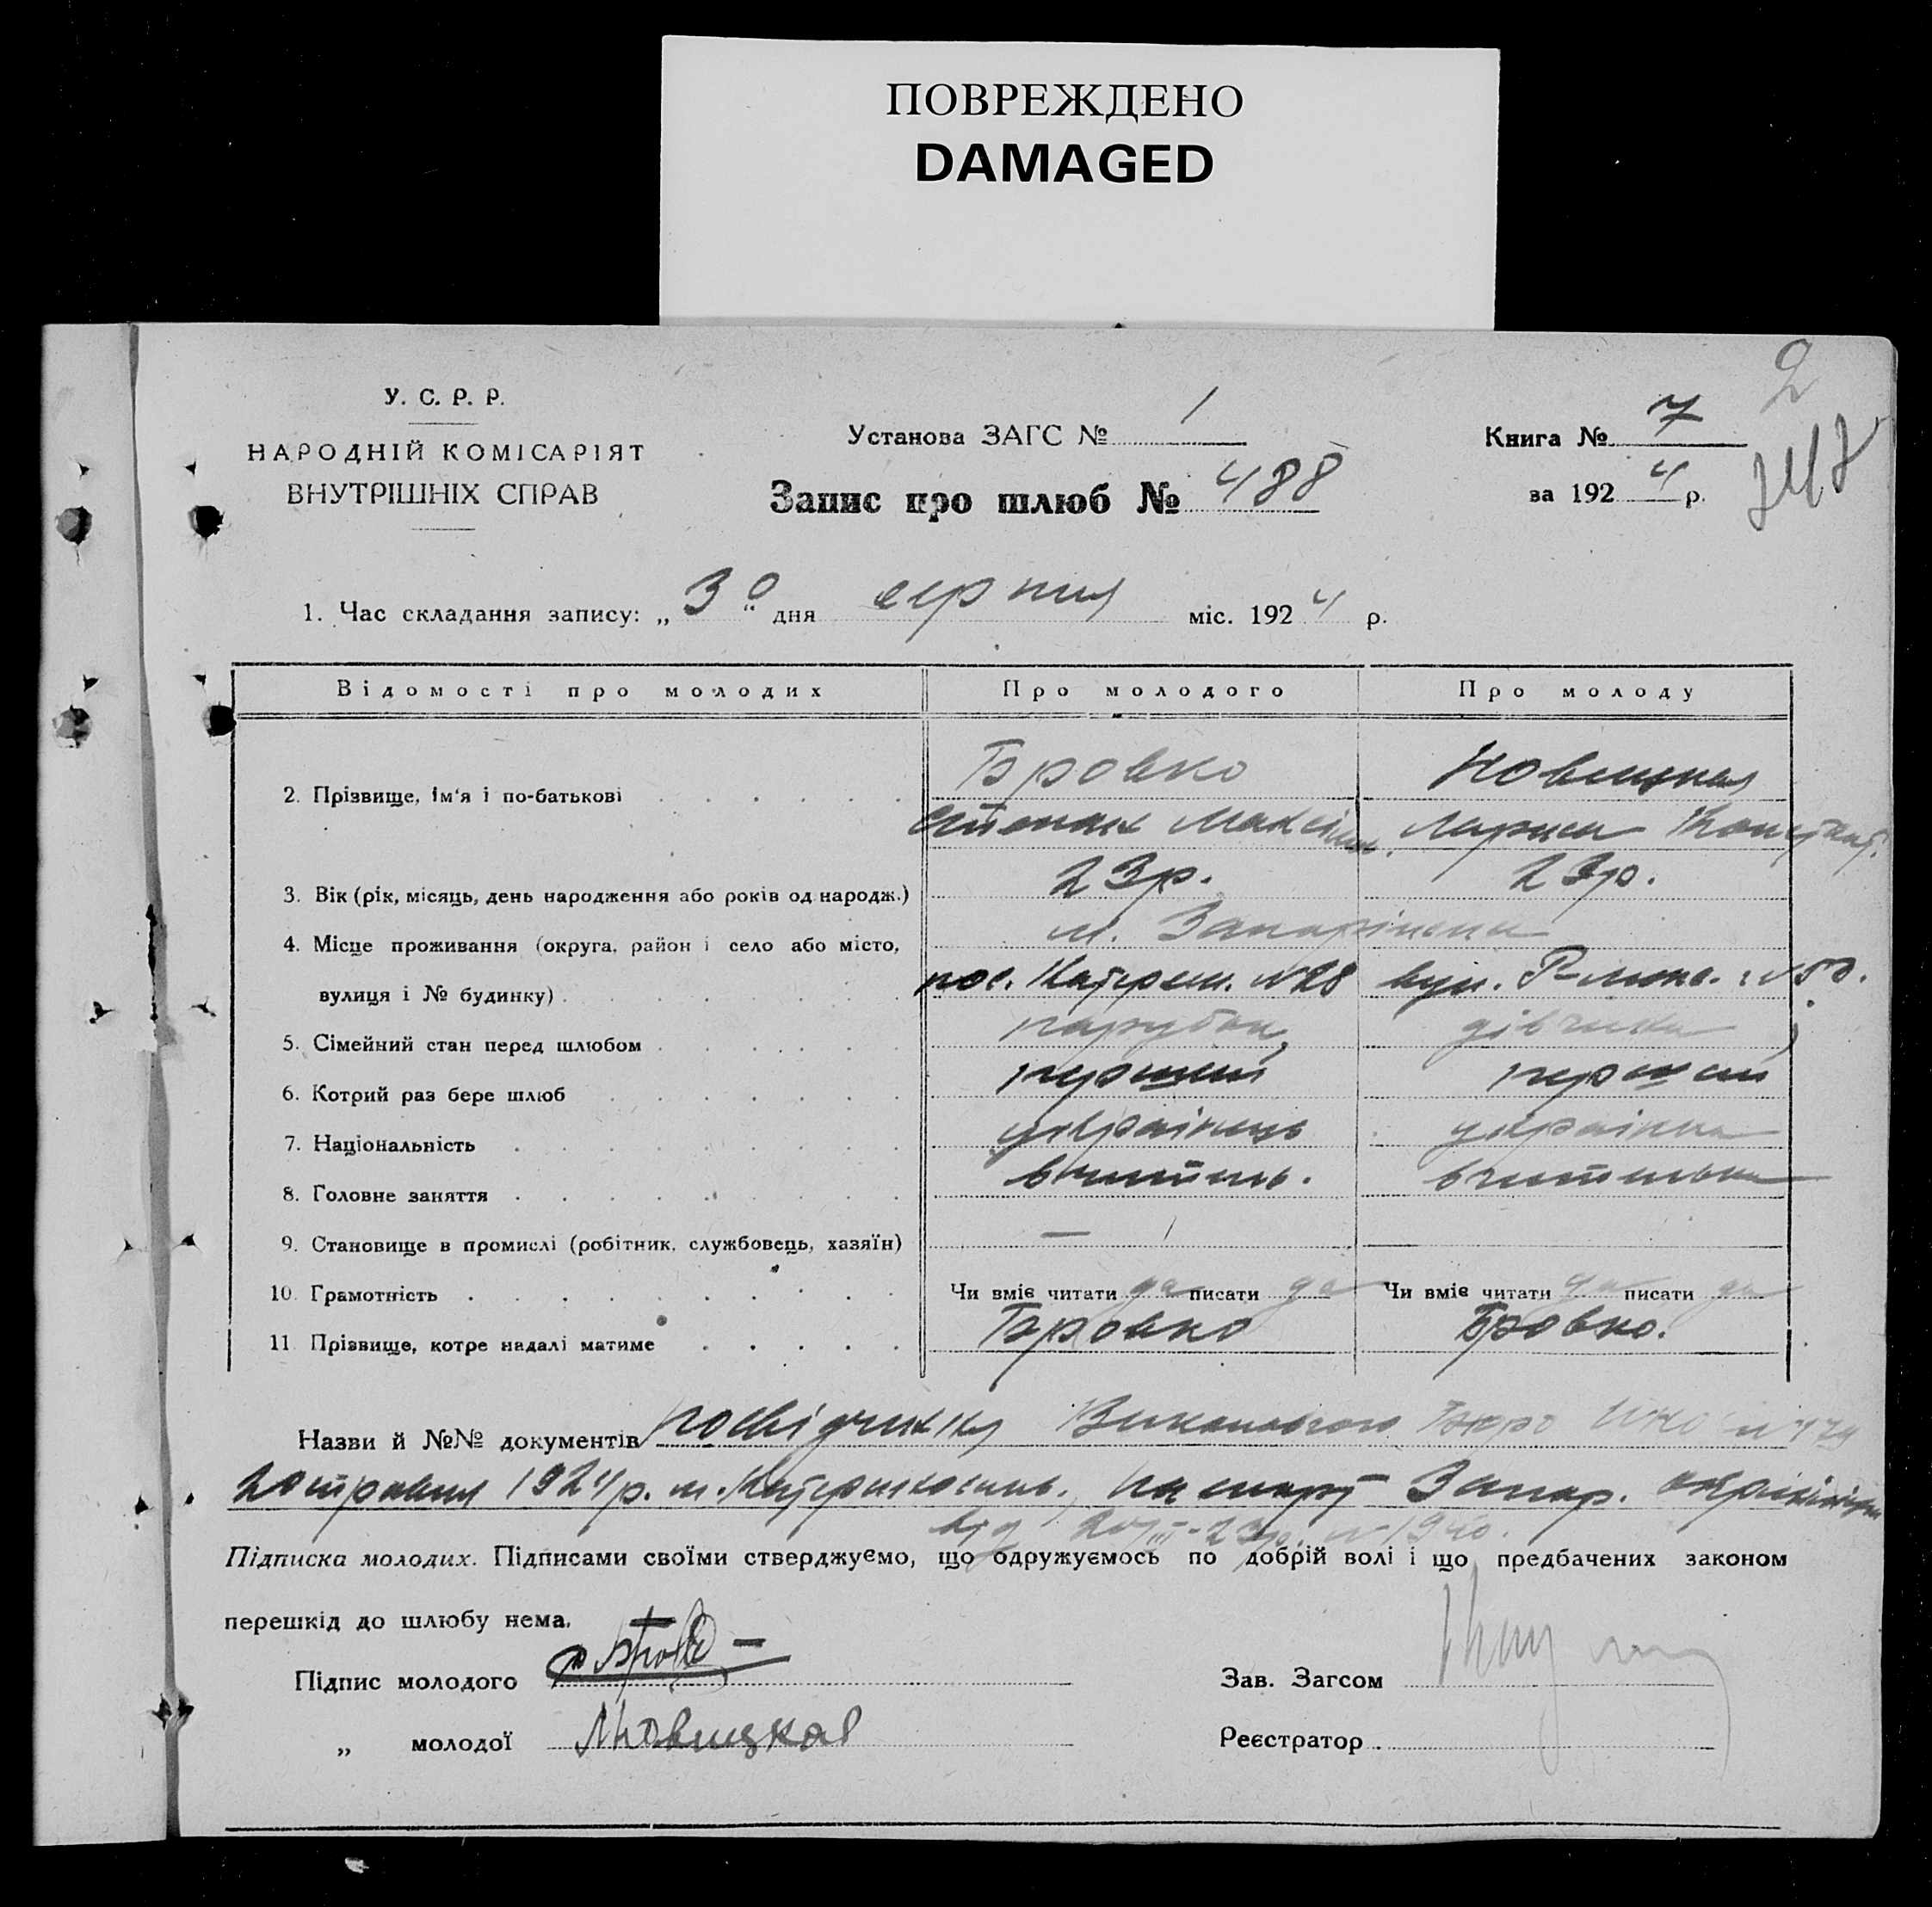 ПОВРЕЖДЕНО
DAMAGED
2
У. С. Р. Р.
НАРОДНІЙ КОМІСАРІЯТ
ВНУТРІШНІХ СПРАВ
Установа ЗАГС № 1
Запис про шлюб № 488
Книга № 7
за 1924 р.
1. Час складання запису: „30“ дня серпня міс. 1924 р.
Відомості про молодих Про молодого Про молоду
2. Прізвище, ім'я і по-батькові Бровко Новицкая
Степан Максим. Лариса
3. Вік (рік, місяць, день народження або років од народж.) 23р. 23р.
4. Місце проживання (округа, район і село або місто, м. Запоріжжа
вулиця і № будинку) пос. Катерин. №28 вул. Р-люкс. №50.
5. Сімейний стан перед шлюбом парубок, дівчина,
6. Котрий раз бере шлюб перший перший
7. Національність українець українка
8. Головне заняття вчитель. вчителька
9. Становище в промислі (робітник, службовець, хазяїн) —
10. Грамотність Чи вміє читати да писати да Чи вміє читати да писати да
11. Прізвище, котре надалі матиме Бровко Бровко.
Назви й №№ документів посвідчення Виконавчого Бюро ІНО
20 травня 1924р. м. Катеринослав., паспорт Запор.
від
Підписка молодих. Підписами своїми стверджуємо, що одружуємось по добрій волі і що предбачених законом
перешкід до шлюбу нема.
Підпис молодого
Зав. Загсом
„ молодої ЛНовицкая
Реєстратор